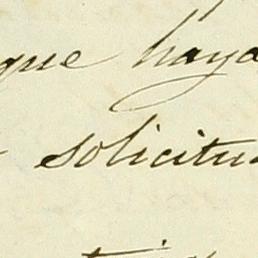 que haya
solicitu